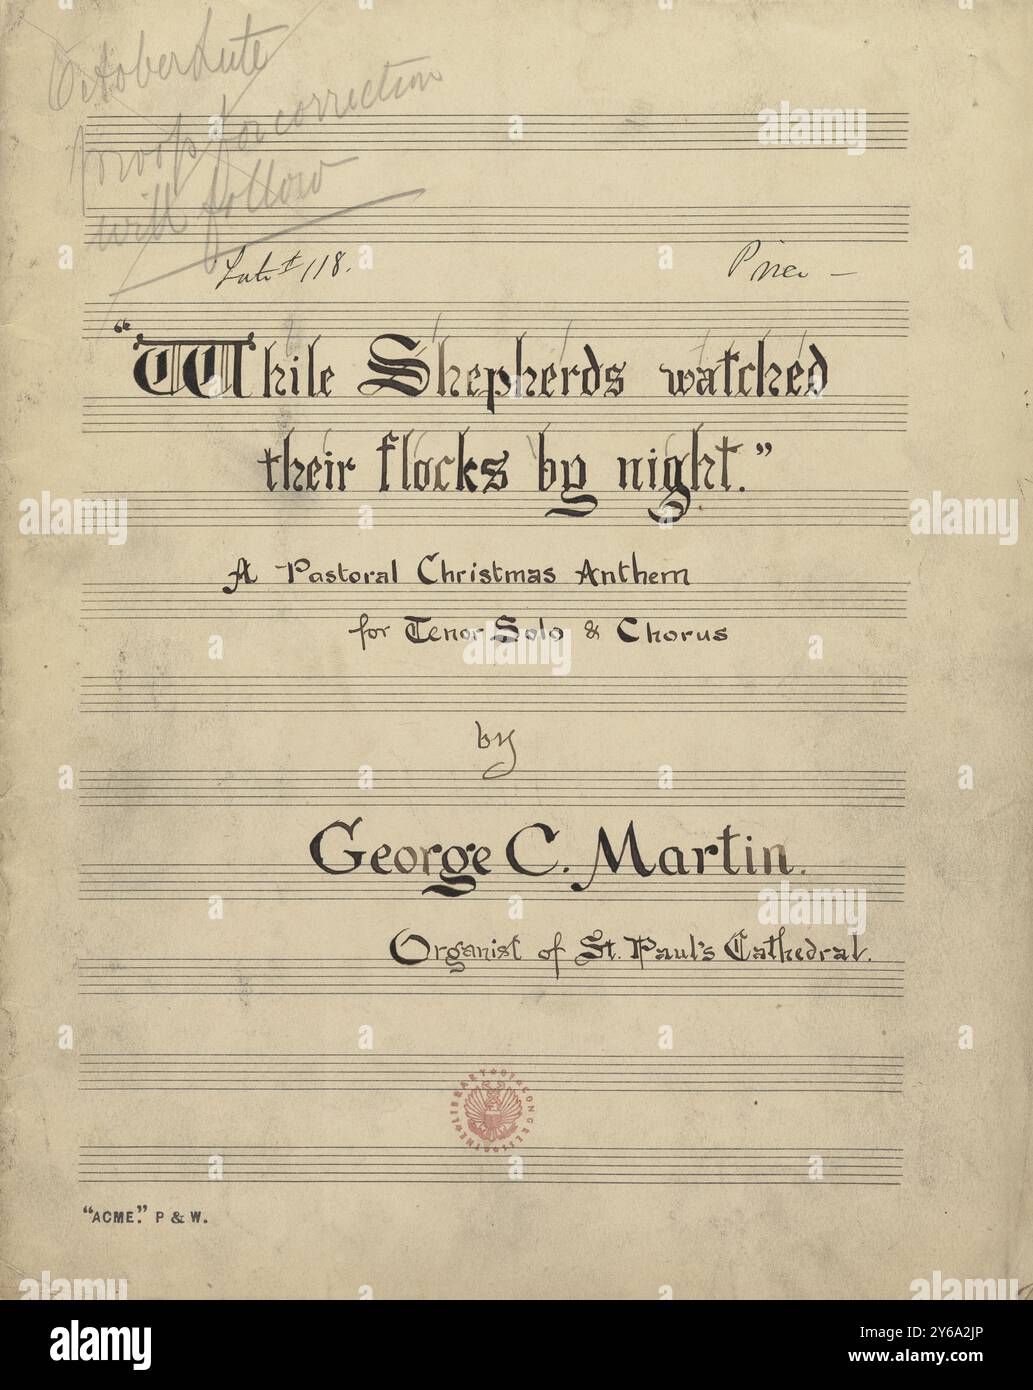 October Lute
Proof for correction
will follow
Lute 118.
“While Shepherds watched
their flocks by night.”
A Pastoral Christmas Anthem
for Tenor Solo & Chorus
by
George C. Martin.
Organist of St. Paul's Cathedral.
THE LIBRARY OF CONGRESS
“ACME.” P & W.
alamy
Image ID: 2Y6A2JP
www.alamy.com